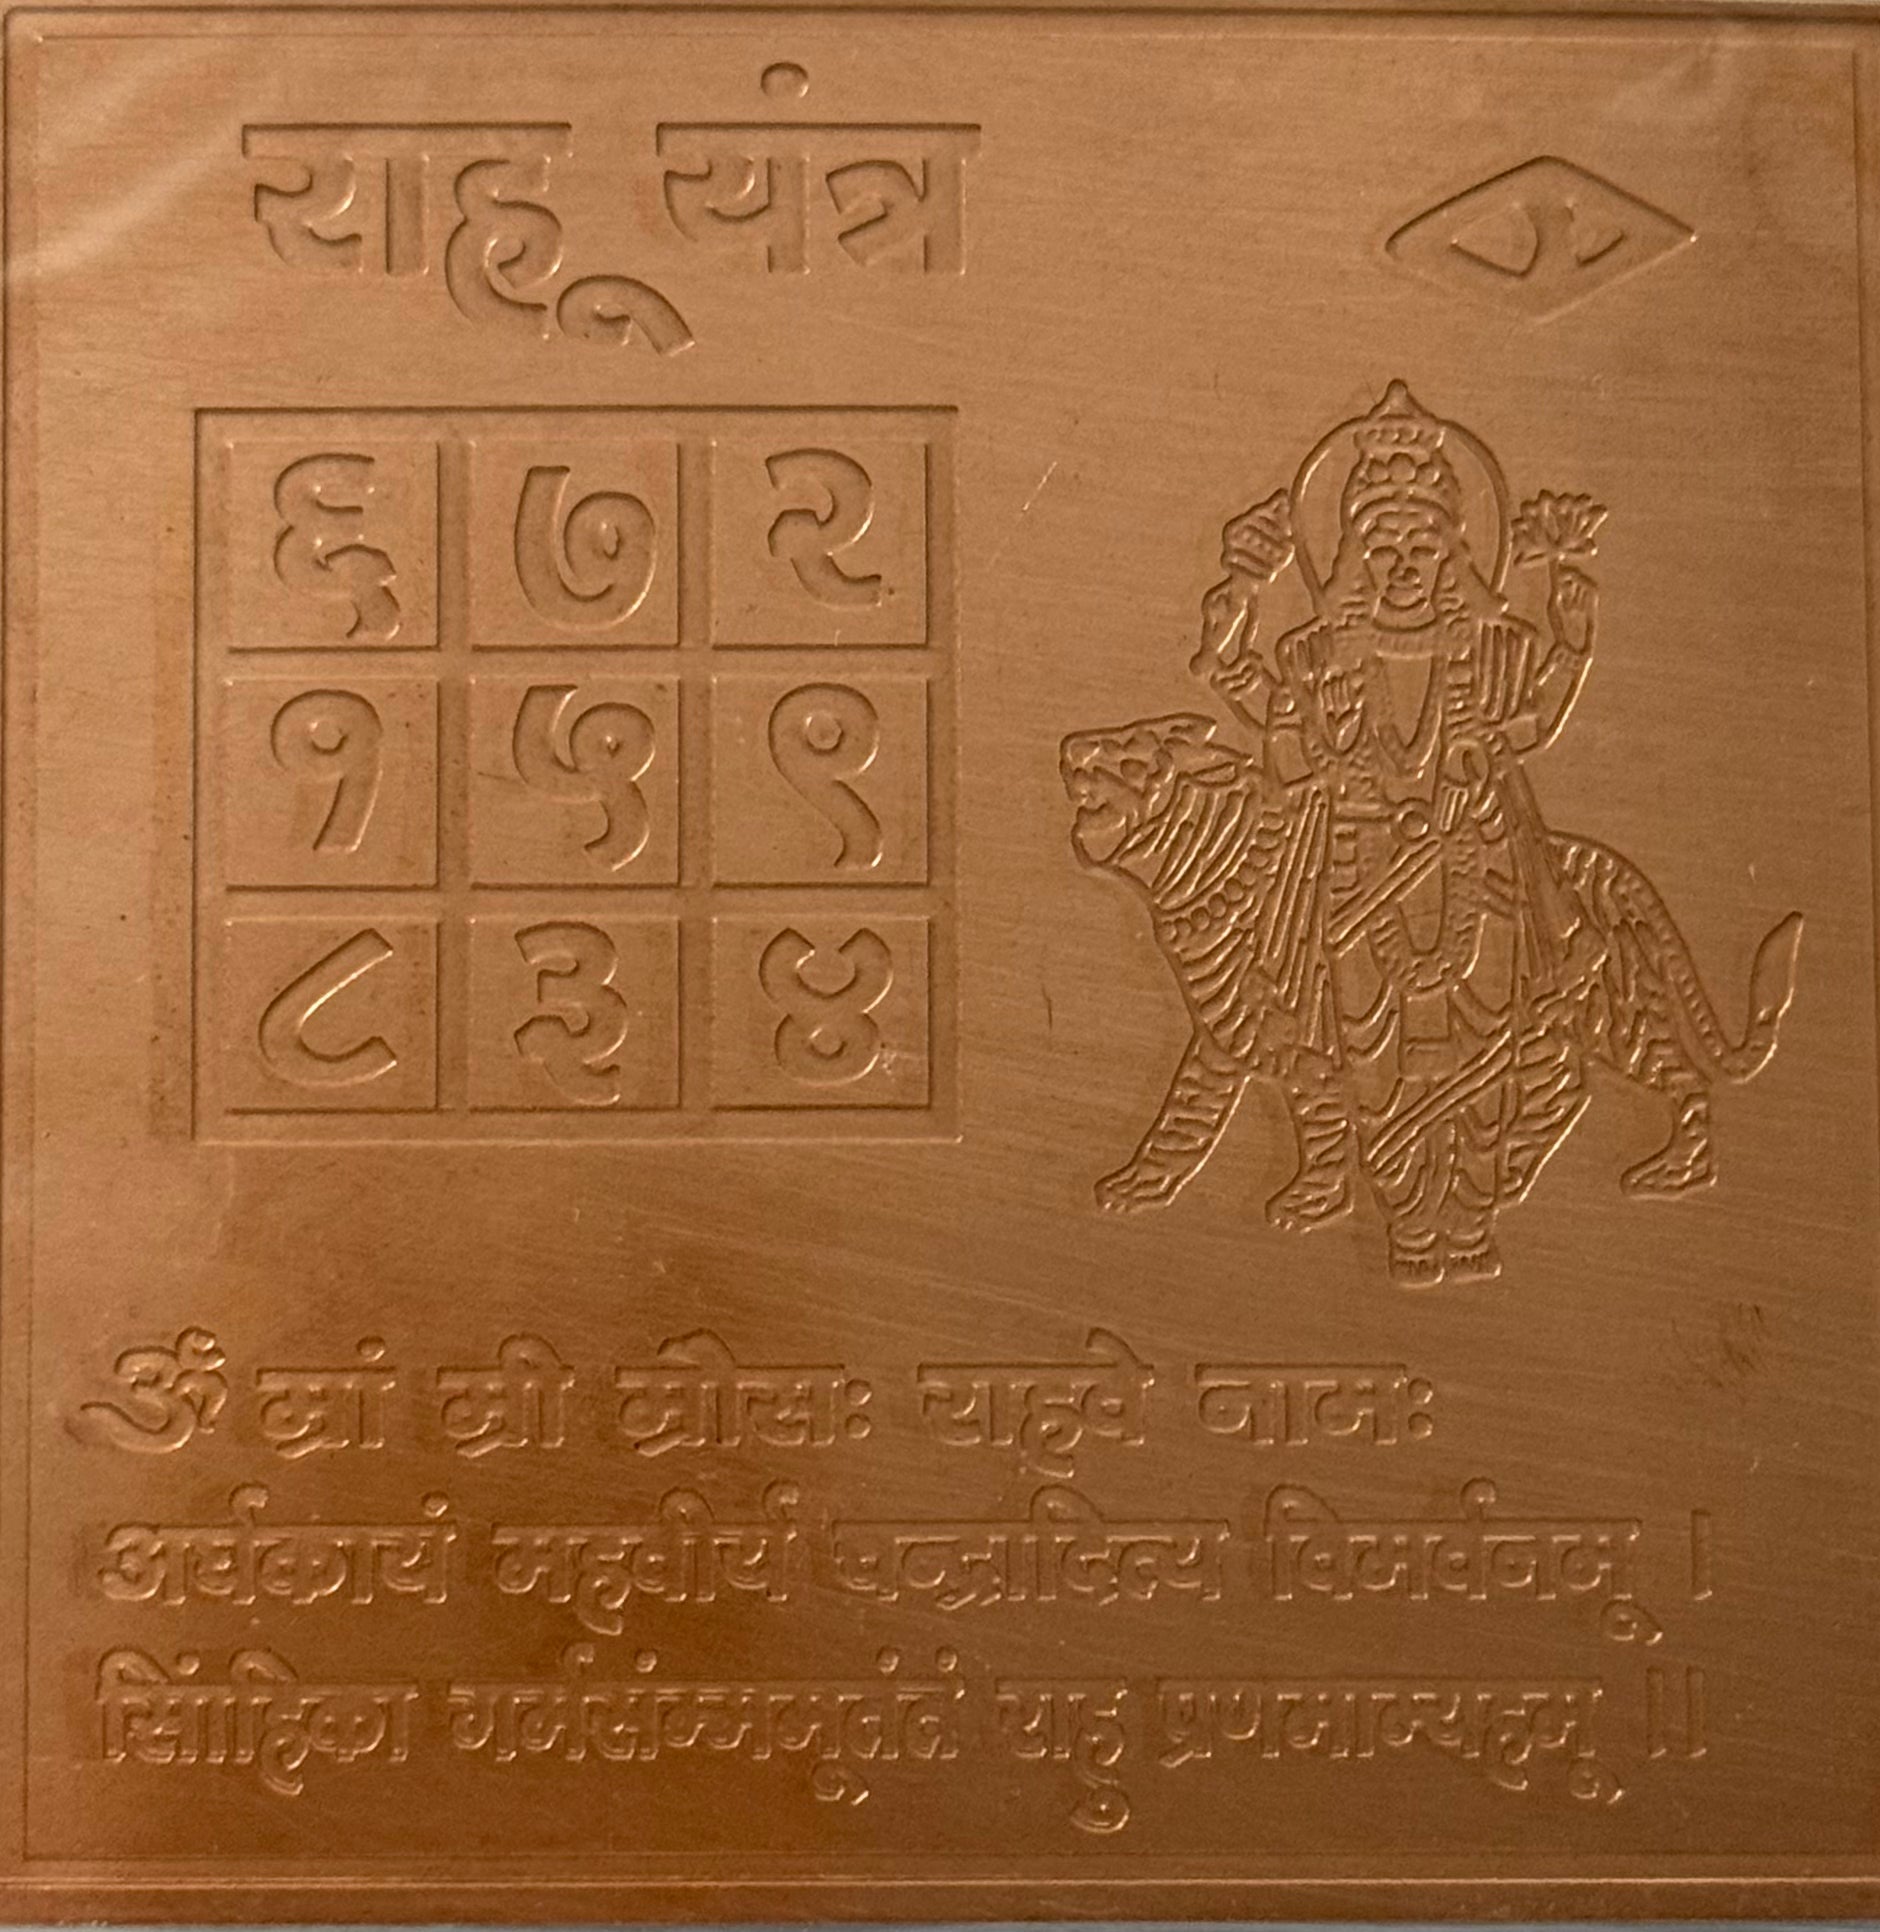 राहू यंत्र
६ ७ २
१ ५ ९
८ ३ ४
ॐ भ्रां भ्री भ्रौसः राहवे नामः
अर्घकायं महवीर्य चन्द्रादित्य विमर्वनम् ।
सिांहिका गर्भसंम्भमूतंतं राहु प्रणमाम्यहम् ॥